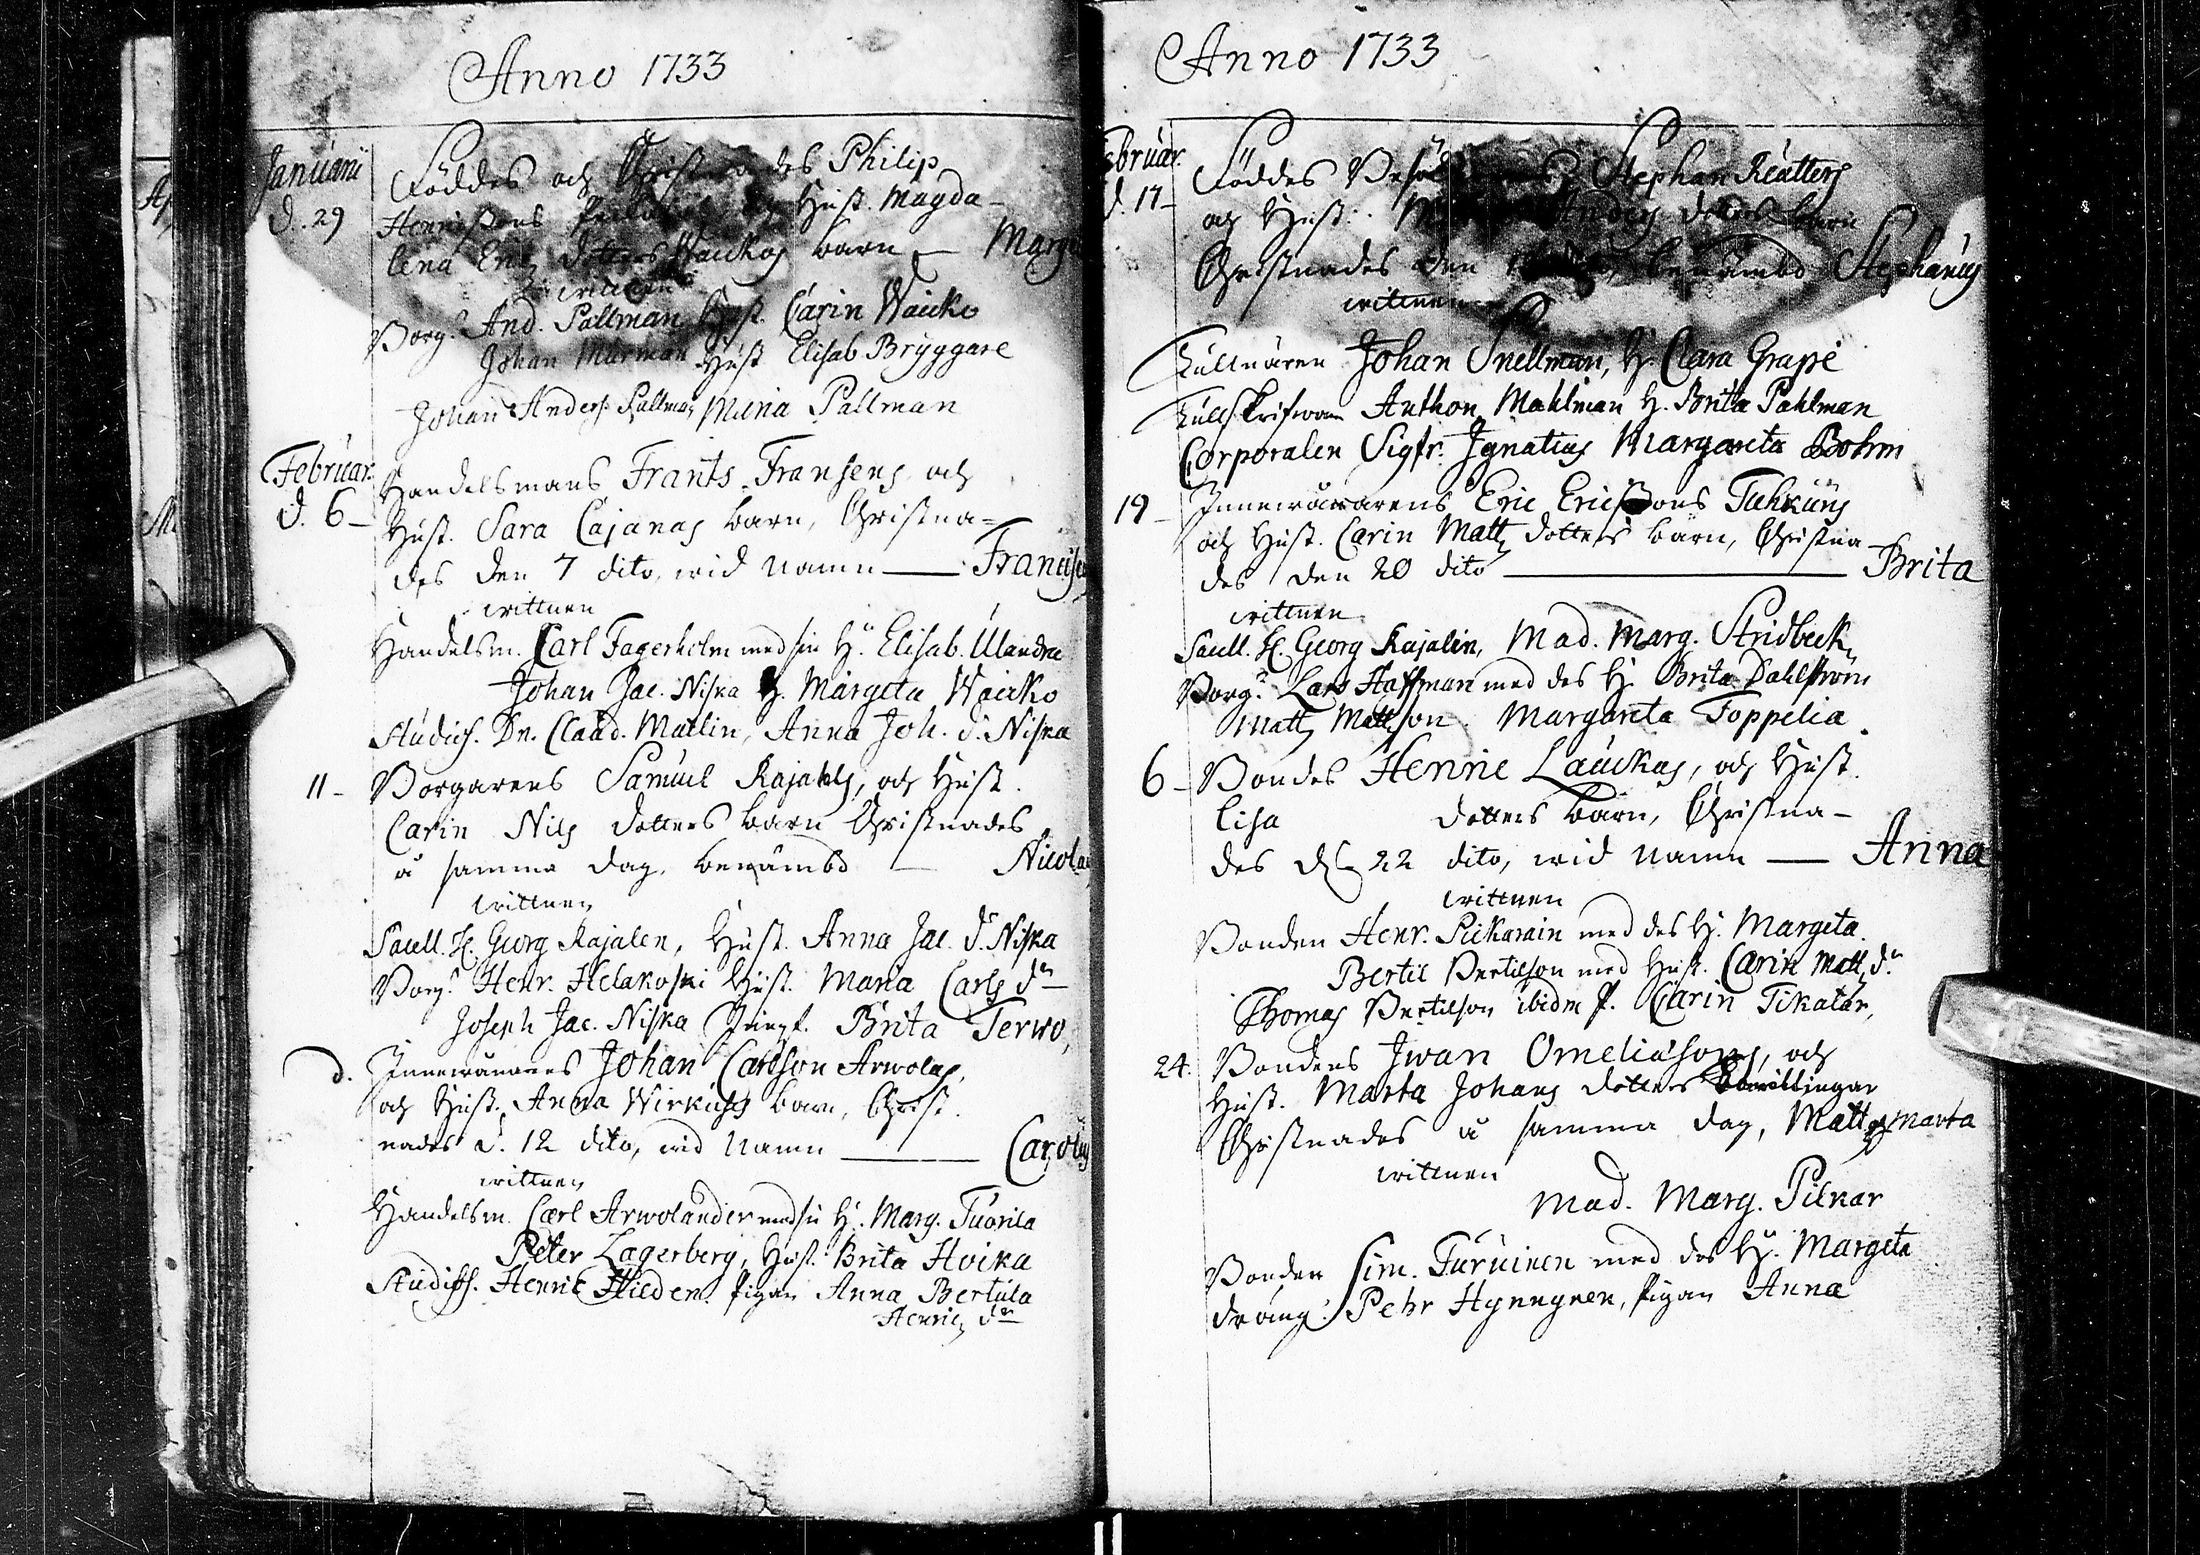 Anno 1733
Januarii
d. 29
Föddes och Christnades Philip
Henrissons och Hust. Magda-
lena Eric dotters Waickos barn — Marge
wittnen
Borg: And. Pallman Hust. Carin Waicko
Johan Murman Hust Elisab Bryggare
Johan Anders. Pallman Maria Pallman
Februar.
d. 6 – Handelsmans Frants Fransens och
Hust. Sara Cajanas barn, Christna=
des den 7 dito, wid namn — Francis
wittnen
Handelsm. Carl Fagerholm med sin H. Elisab. Ulandra
Johan Jac. Niska H. Margeta Waicko
Studios. Dn. Claud. Matlin, Anna Joh. d. Niska
11 – Borgarens Samuel Kajahls, och Hust.
Carin Nils dotters barn Christnades
a samma dag, benämbd — Nicola
wittnen
Saell. H. Georg Kajalen, Hust. Anna Jac. d. Niska
Borg: Henr. Helakoski Hust. Maria Carls dr
Joseph Jac. Niska Brita Terwo,
d. Innewånarens Johan Carlsson Arwolas,
och Hust. Anna Wirkuhs barn, Christ.
nades d. 12 dito, wid namn — Carolus
wittnen
Handelsm. Carl Arwolander med sin H. Marg. Tuorila
Peter Lagerberg, Hust. Brita Hoika
Studios. Henric Hilden. Pigan Anna Bertula
Henrics dr
Anno 1733
Februar.
d. 17 – Föddes Stephan Reutters
och Hust. Anders dotters barn
Christnades den benämbd Stephanus
wittnen
Tullnären Johan Snellman, H. Clara Grape
Tullskrifwaren Anthon Mahlman H. Brita Pahlman
Corporalen Sigfr. Ignatius Margareta Bohm
19 – Innewånarens Eric Ericssons Tuhkuns
och Hust. Carin Matts dotters barn, Christna
des den 20 dito — Brita
wittnen
Saell. H. Georg Kajalin, Mad. Marg. Stridbeck,
Borg: Lars Haffman med des H. Brita Dahlström
Matts Mattsson. Margareta Toppelia.
6 – Bondes Henric Lauckas, och Hust.
Lisa dotters barn, Christna-
des d. 22 dito, wid namn — Anna
wittnen
Bonden Henr. Pickarain med des H. Margeta.
Bertil Bertilson med Hust. Carin Matts dr
Thomas Bertilson ibidm P. Carin Tikatar,
24. Bondens Iwan Omeliasons, och
Hust. Marta Johans dotters twillingar
Christnades a samma dag, Matts och Marta
wittnen
Mad. Marg. Pilkar
Bonden Sim. Turuinen med des H. Margeta
dräng: Pehr Hynnynen, Pigan Anna